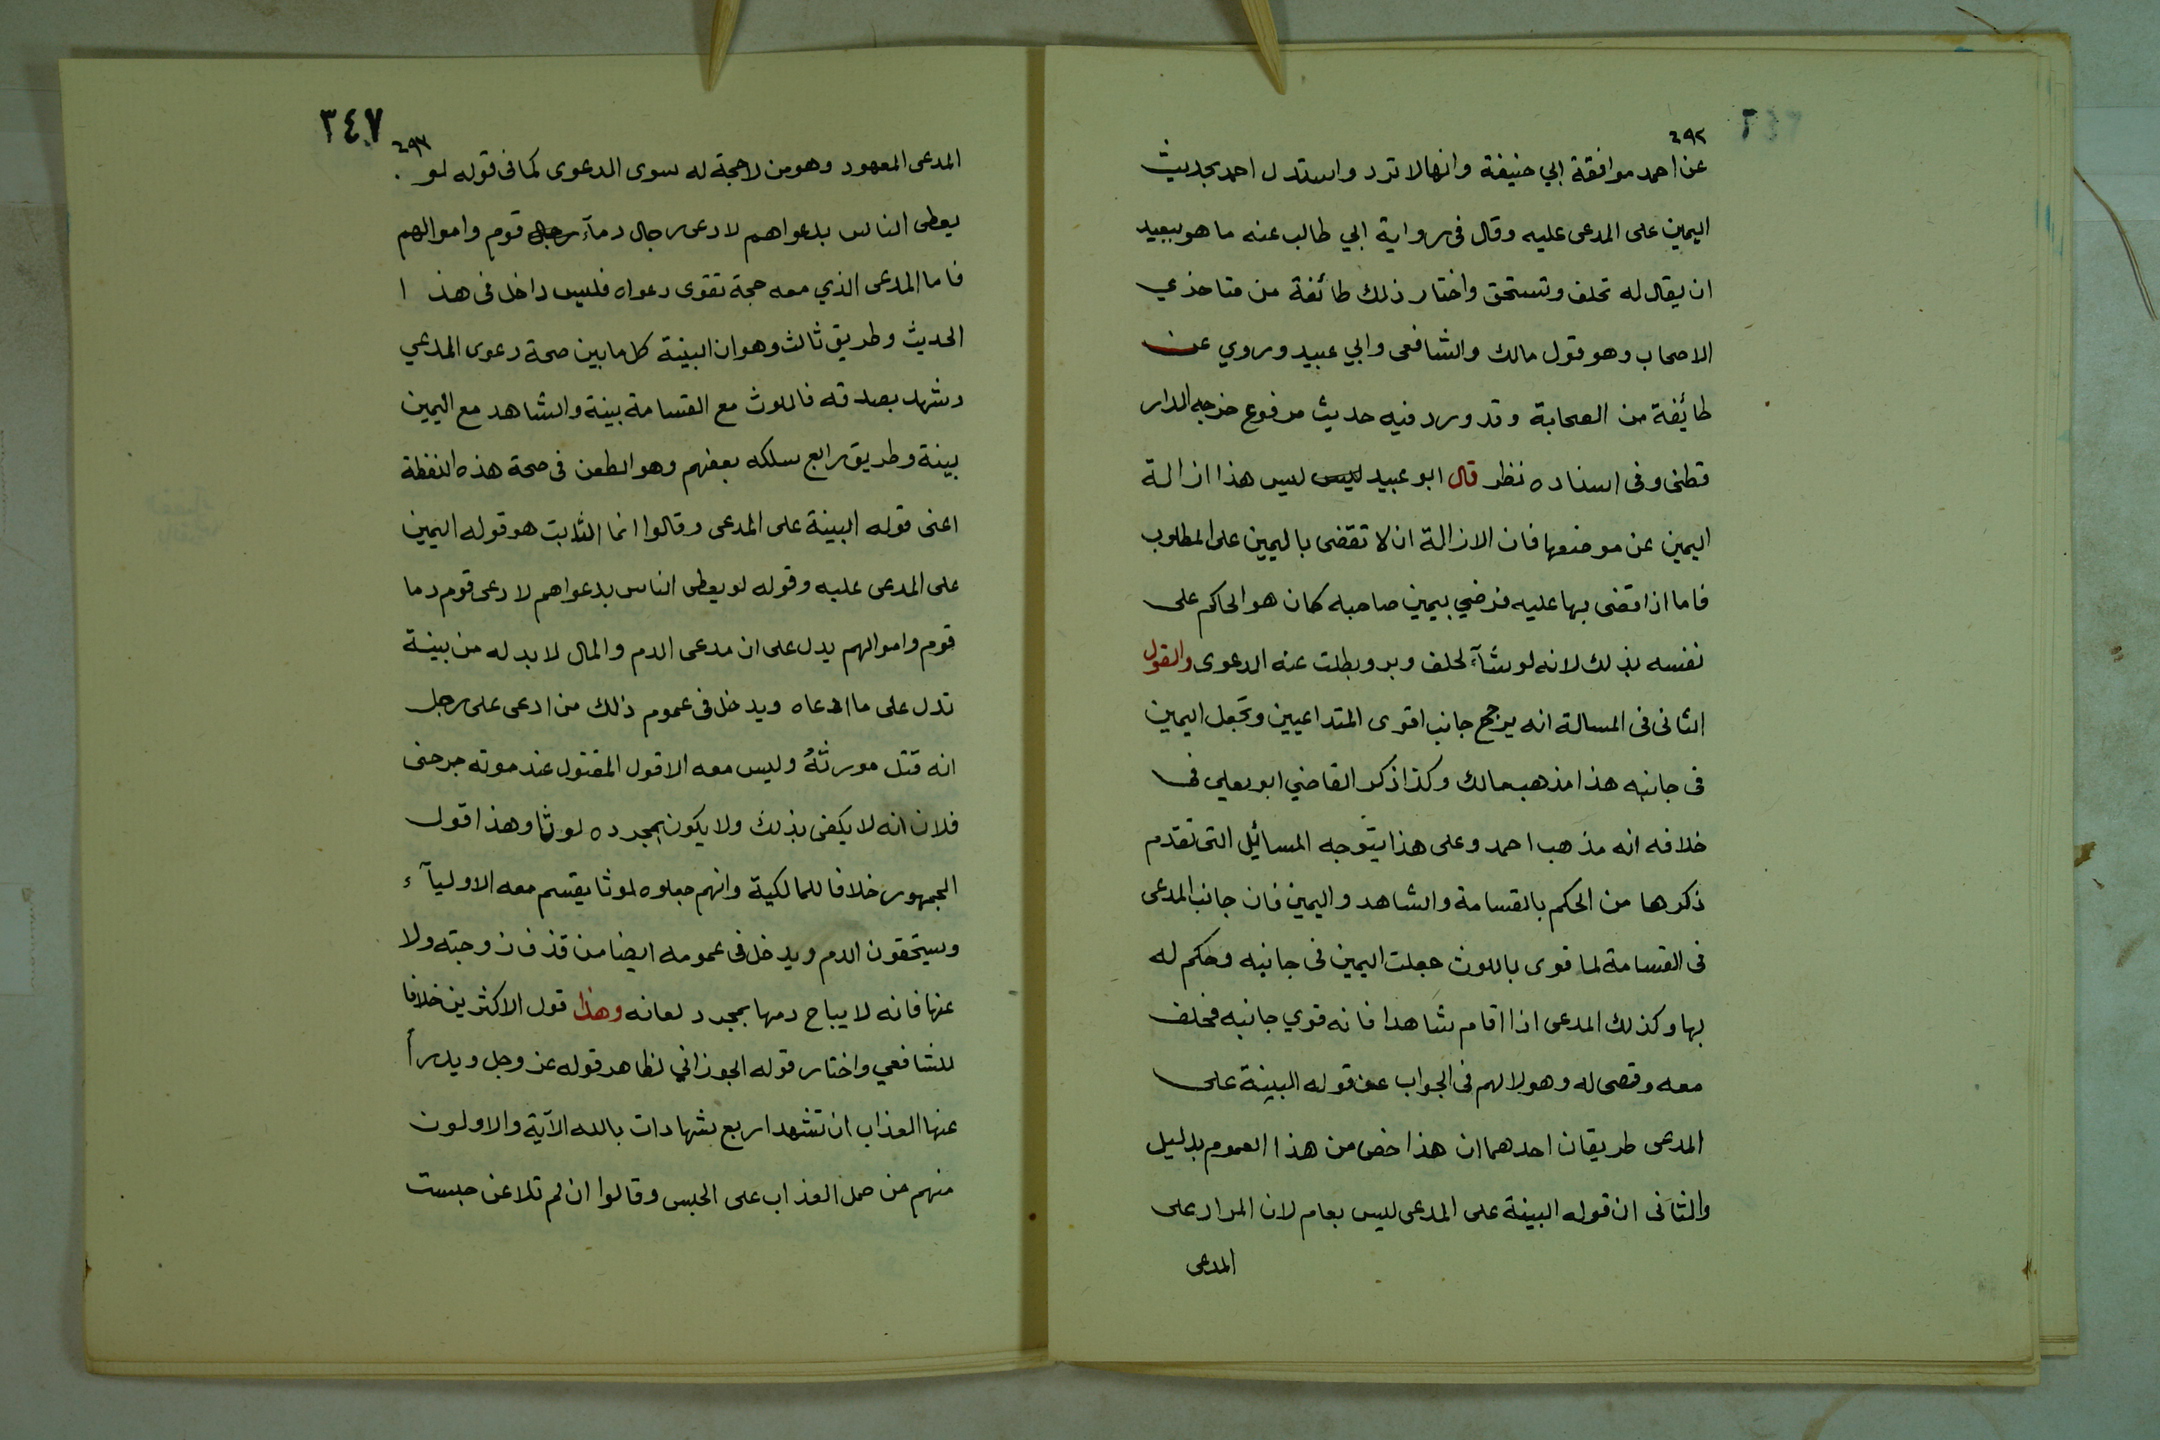 ٤٩٢
عن احمد موافقة ابي حنيفة وانها لا ترد واستدل احمد بحديث
اليمين على المدعى عليه وقال فى رواية ابي طالب عنه ما هو ببعيد
ان يقال له تحلف وتستحق واختار ذلك طائفة من متاخذي
الاصحاب وهو قول مالك والشافعى وابي عبيد وروي عن
طائفة من الصحابة وقد ورد فيه حديث مرفوع خرجه الدار
قطنى وفى اسناده نظر قال ابو عبيد ليس ليس هذا ازالة
اليمين عن موضعها فان الازالة ان لا تقضى باليمين على المطلوب
فاما اذا قضى بها عليه فرضي بيمين صاحبه كان هو الحاكم على
نفسه بذلك لانه لو شآء لحلف وبر وبطلت عنه الدعوى والقول
الثانى فى المسالة انه يرجح جانب اقوى المتداعيين وتجعل اليمين
فى جانبه هذا مذهب مالك وكذا ذكر القاضي ابو يعلي فى
خلافه انه مذهب احمد وعلى هذا يتوجه المسائيل التى تقدم
ذكرها من الحكم بالقسامة والشاهد واليمين فان جانب المدعى
فى القسامة لما قوى باللوث جعلت اليمين فى جانبه وحكم له
بها وكذلك المدعى اذا اقام شاهدا فانه قوي جانبه فحلف
معه وقضى له وهولا لهم فى الجواب عن قوله البينة على
المدعى طريقان احدهما ان هذا خص من هذا العموم بدليل
والثانى ان قوله البينة على المدعى ليس بعام لان المراد على
المدعى
٣٤٧
٤٩٣
المدعى المعهود وهو من لا حجة له سوى الدعوى كما فى قوله لو
يعطى الناس بدعواهم لادعى رجال دمآء رجال قوم واموالهم
فاما المدعى الذي معه حجة تقوى دعواه فليس داخل فى هذا
الحديث وطريق ثالث وهو ان البينة كل ما بين صحة دعوى المدعي
وشهد بصدقه فاللوث مع القسامة بينة والشاهد مع اليمين
بينة وطريق رابع سلكه بعضهم وهو الطعن فى صحة هذه اللفظة
اعنى قوله البينة على المدعى وقالوا انما الثابت هو قوله اليمين
على المدعى عليه وقوله لو يعطى الناس بدعواهم لادعى قوم دما
قوم واموالهم يدل على ان مدعى الدم والمال لا بد له من بينة
تدل على ما ادعاه ويدخل فى عموم ذلك من ادعى على رجل
انه قتل مورثهُ وليس معه الا قول المقتول عند موته جرحنى
فلان انه لا يكفى بذلك ولا يكون بمجرده لوثا وهذا قول
الجمهور خلافا للمالكية وانهم جعلوه لوثا يقسم معه الاوليآء
ويستحقون الدم ويدخل فى عمومه ايضا من قذف زوجته ولا
عنها فانه لا يباح دمها بمجرد لعانه وهذا قول الاكثرين خلافا
للشافعي واختار قوله الجوزاني لظاهر قوله عز وجل ويدرأ
عنها العذاب ان تشهد اربع شهادات بالله الآية والاولون
منهم من حمل العذاب على الحبس وقالوا ان لم تلاعن حبست